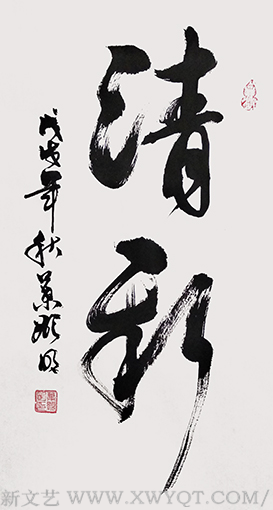 清新
戊戌年秋景顺明
新文艺 WWW.XWYQT.COM